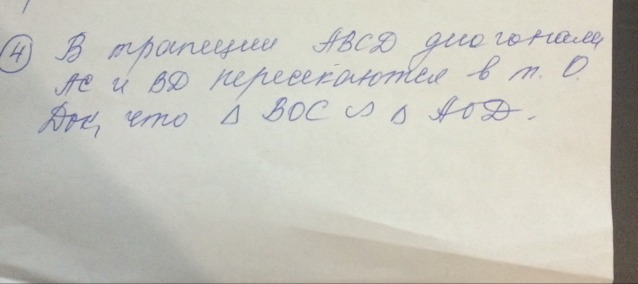 ④ В трапеции ABCD диагонали
AC и BD пересекаются в т. O.
Док, что △ BOC ∽ △ AOD.